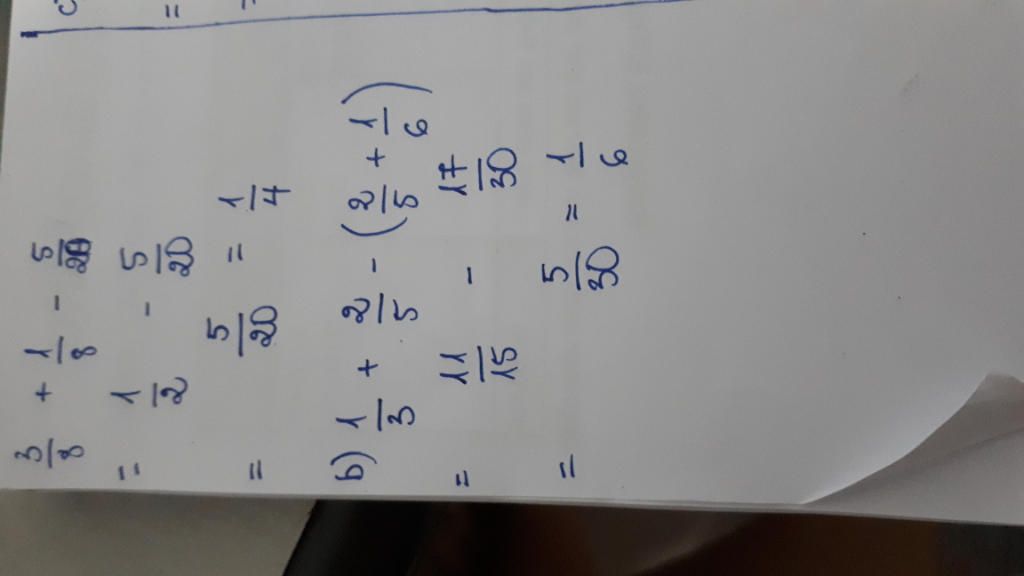 3/8 + 1/8 - 5/20
= 1/2 - 5/20
= 5/20 = 1/4
b) 1/3 + 2/5 - (2/5 + 1/6)
= 11/15 - 17/30
= 5/30 = 1/6